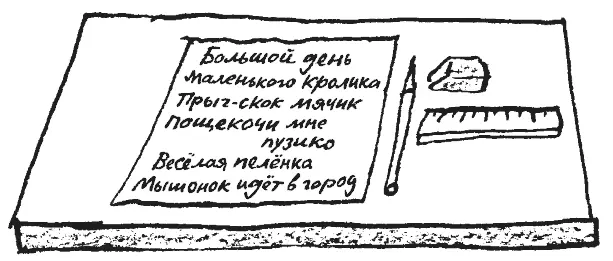 Большой день
маленького кролика
Прыг-скок мячик
Пощекочи мне
пузико
Весёлая пелёнка
Мышонок идёт в город